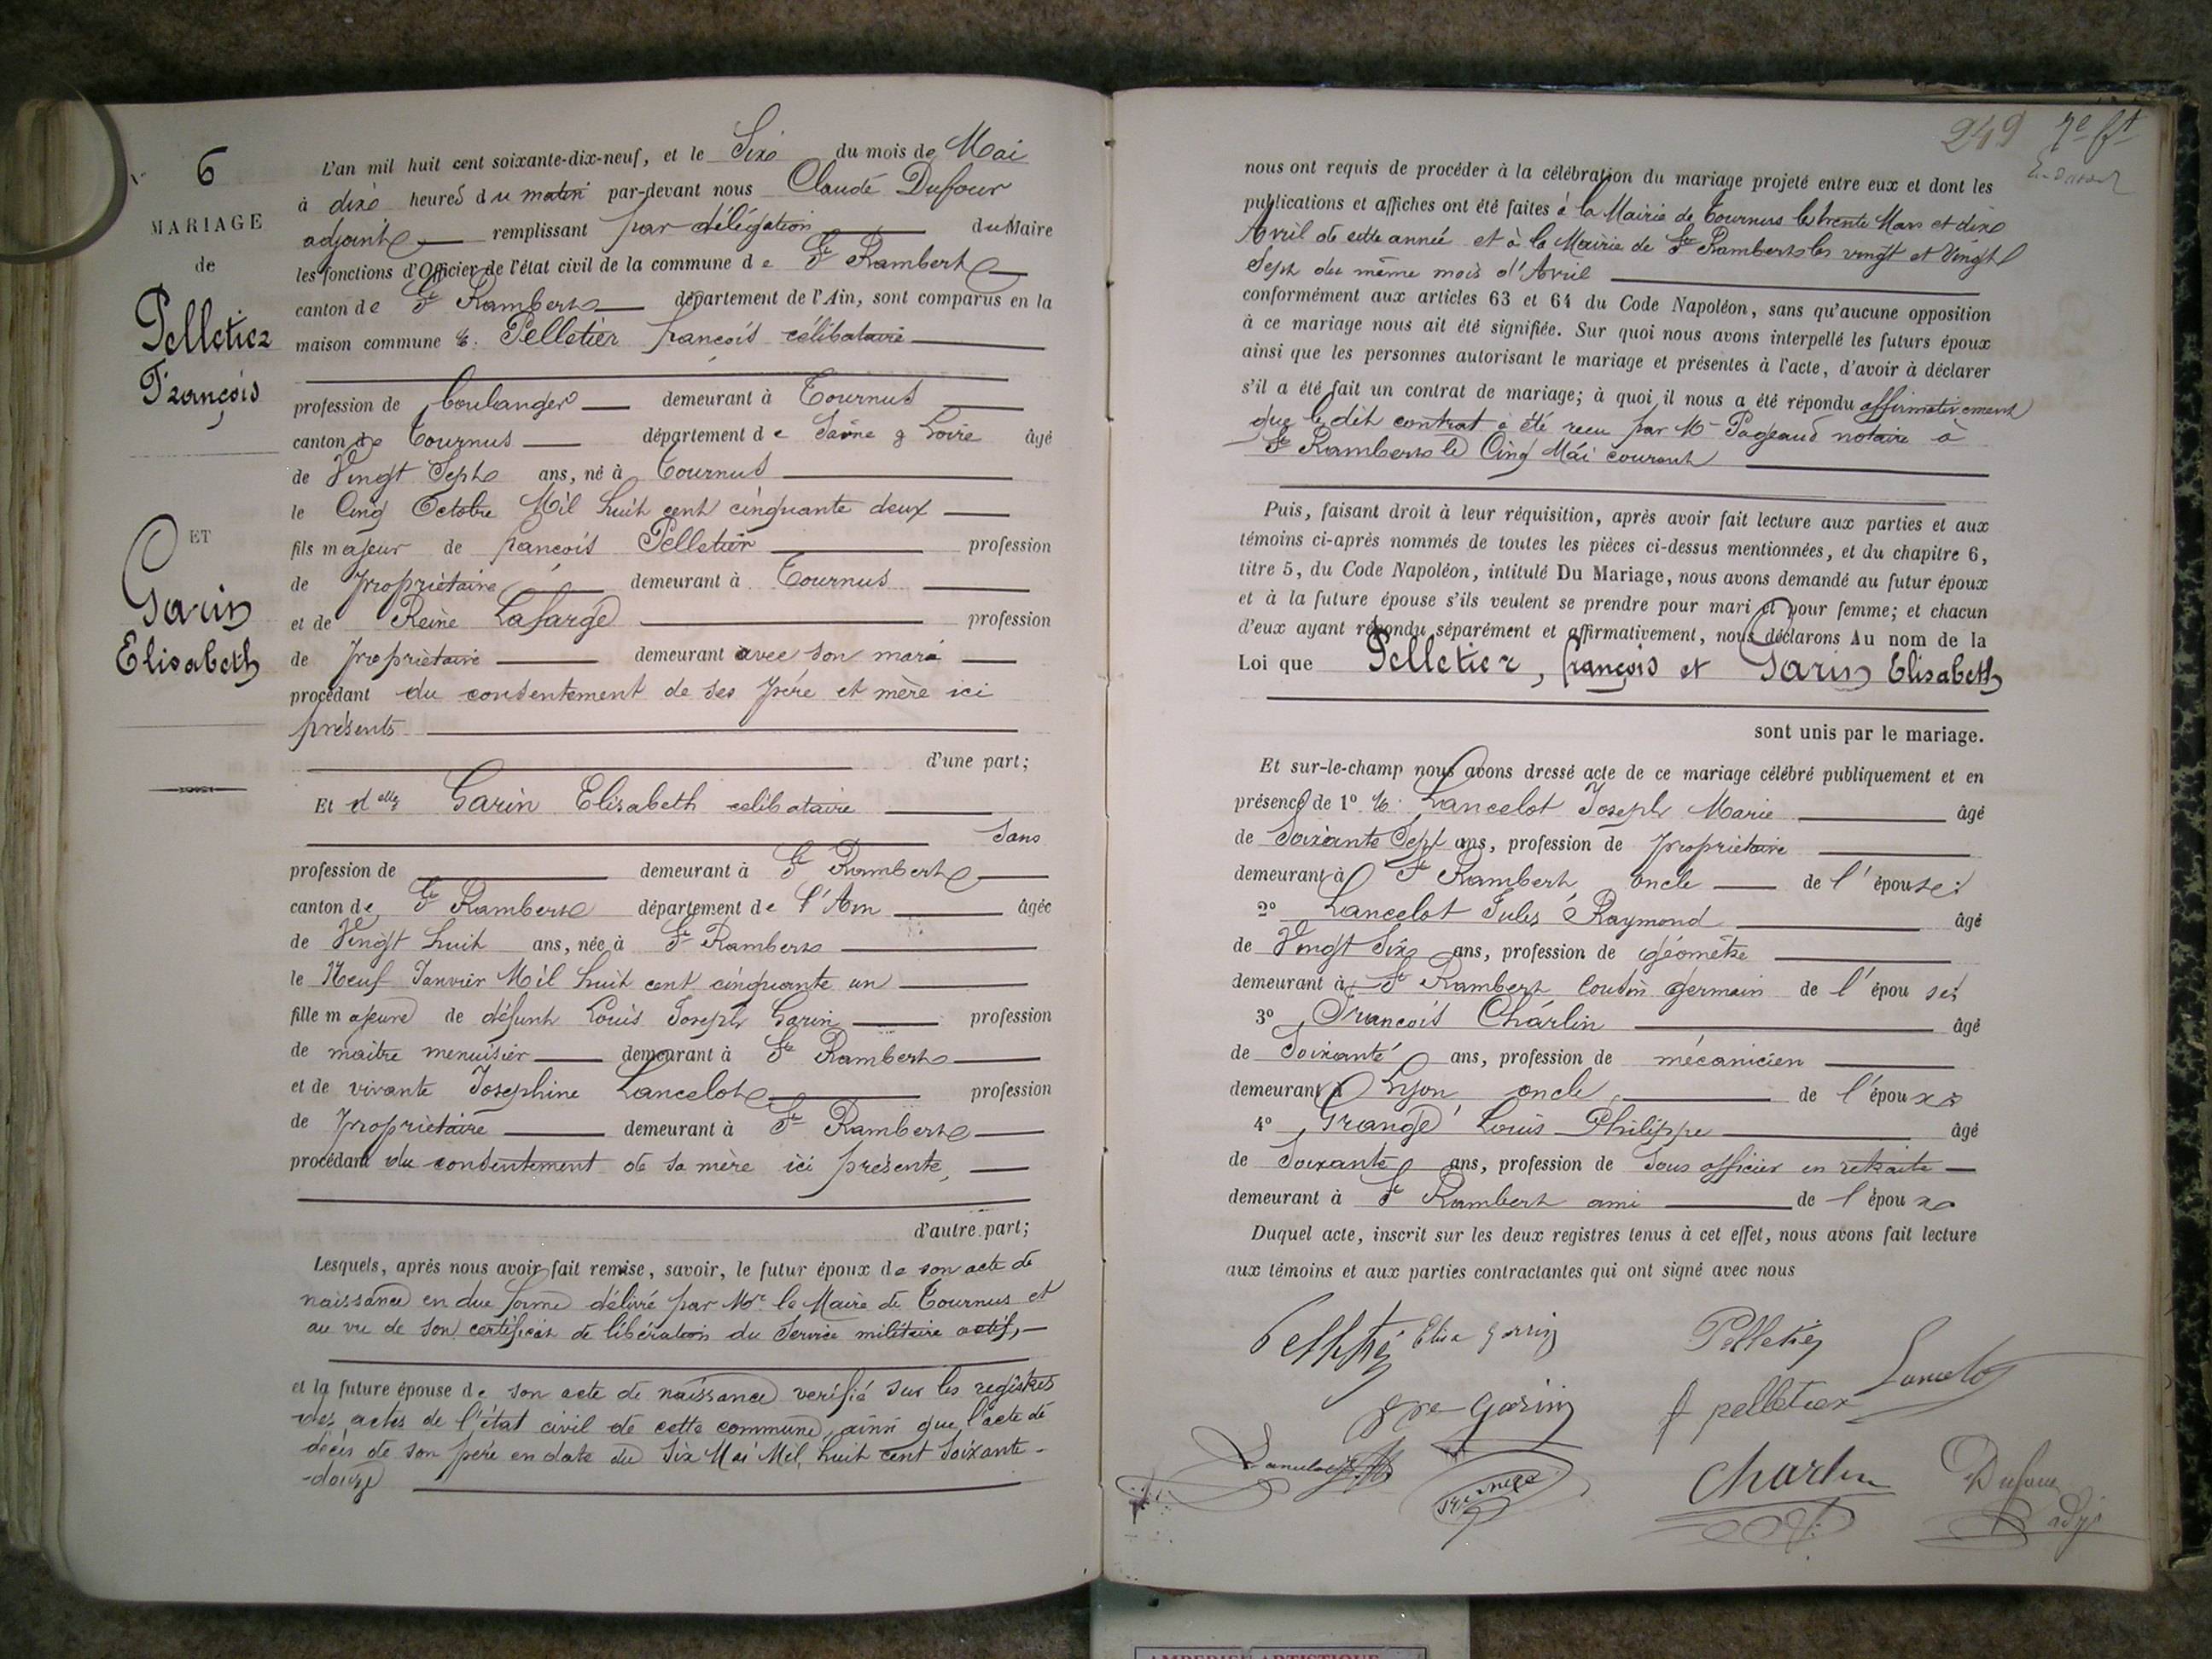 6
MARIAGE
de
Pelletier
François
ET
Garin
Elisabeth
L'an mil huit cent soixante-dix-neuf, et le Six du mois de Mai
à dix heures du matin par-devant nous Claude Dufour
adjoint remplissant par délégation du Maire
les fonctions d'Officier de l'état civil de la commune de St Rambert
canton de St Rambert département de l'Ain, sont comparus en la
maison commune M. Pelletier françois célibataire
profession de boulanger demeurant à Tournus
canton de Tournus département de Saône & Loire âgé
de Vingt Sept ans, né à Tournus
le Cinq Octobre Mil huit cent cinquante deux
fils majeur de françois Pelletier profession
de propriétaire demeurant à Tournus
et de Reine Lafarge profession
de propriètaire demeurant avec son mari
procédant du consentement de ses père et mère ici
présents
d'une part;
Et delle Garin Elisabeth celibataire
Sans
profession de demeurant à St Rambert
canton de St Rambert département de l'Ain âgée
de Vingt huit ans, née à St Rambert
le Neuf Janvier Mil huit cent cinquante un
fille majeure de défunt Louis Joseph Garin profession
de maitre menuisier demeurant à St Rambert
et de vivante Josephine Lancelot profession
de propriètaire demeurant à St Rambert
procédant du consentement de sa mère ici présente,
d'autre part;
Lesquels, après nous avoir fait remise, savoir, le futur époux de son acte de
naissance en due forme délivré par Mr le Maire de Tournus et
au vu de son certificat de libération du Service militaire actif,
et la future épouse de son acte de naissance verifié sur les registres
des actes de l'état civil de cette commune, ainsi que l'acte de
décès de son père en date du Six Mai Mil huit cent soixante-
-douze
249 7e ft
nous ont requis de procéder à la célébration du mariage projeté entre eux et dont les
publications et affiches ont été faites à la Mairie de Tournus les trente Mars et dix
Avril de cette année et à la Mairie de St Rambert les vingt et Vingt
Sept du même mois d'Avril
conformément aux articles 63 et 64 du Code Napoléon, sans qu'aucune opposition
à ce mariage nous ait été signifiée. Sur quoi nous avons interpellé les futurs époux
ainsi que les personnes autorisant le mariage et présentes à l'acte, d'avoir à déclarer
s'il a été fait un contrat de mariage; à quoi il nous a été répondu affirmativement
que le dit contrat a été recu par Me Pageaud notaire à
St Rambert le Cinq Mai courant
Puis, faisant droit à leur réquisition, après avoir fait lecture aux parties et aux
témoins ci-après nommés de toutes les pièces ci-dessus mentionnées, et du chapitre 6,
titre 5, du Code Napoléon, intitulé Du Mariage, nous avons demandé au futur époux
et à la future épouse s'ils veulent se prendre pour mari et pour femme; et chacun
d'eux ayant répondu séparément et affirmativement, nous déclarons Au nom de la
Loi que Pelletier, françois et Garin Elisabeth
sont unis par le mariage.
Et sur-le-champ nous avons dressé acte de ce mariage célébré publiquement et en
présence de 1º M. Lancelot Joseph Marie âgé
de Soixante Sept ans, profession de propriètaire
demeurant à St Rambert oncle de l'épouse;
2º Lancelot Jules Raymond âgé
de Vingt Six ans, profession de géomètre
demeurant à St Rambert Cousin germain de l'épouse;
3º François Charlin âgé
de Soixante ans, profession de mécanicien
demeurant à Lyon oncle de l'époux
4º Grange Louis Philippe âgé
de Soixante ans, profession de Sous officier en retraite
demeurant à St Rambert ami de l'époux
Duquel acte, inscrit sur les deux registres tenus à cet effet, nous avons fait lecture
aux témoins et aux parties contractantes qui ont signé avec nous
Pelletier Elisa Garin Pelletier
Lancelot
Garin f pelletier
Lancelot Grange Charlin Dufour
adj
AMPERIEN ARTISTIQUE